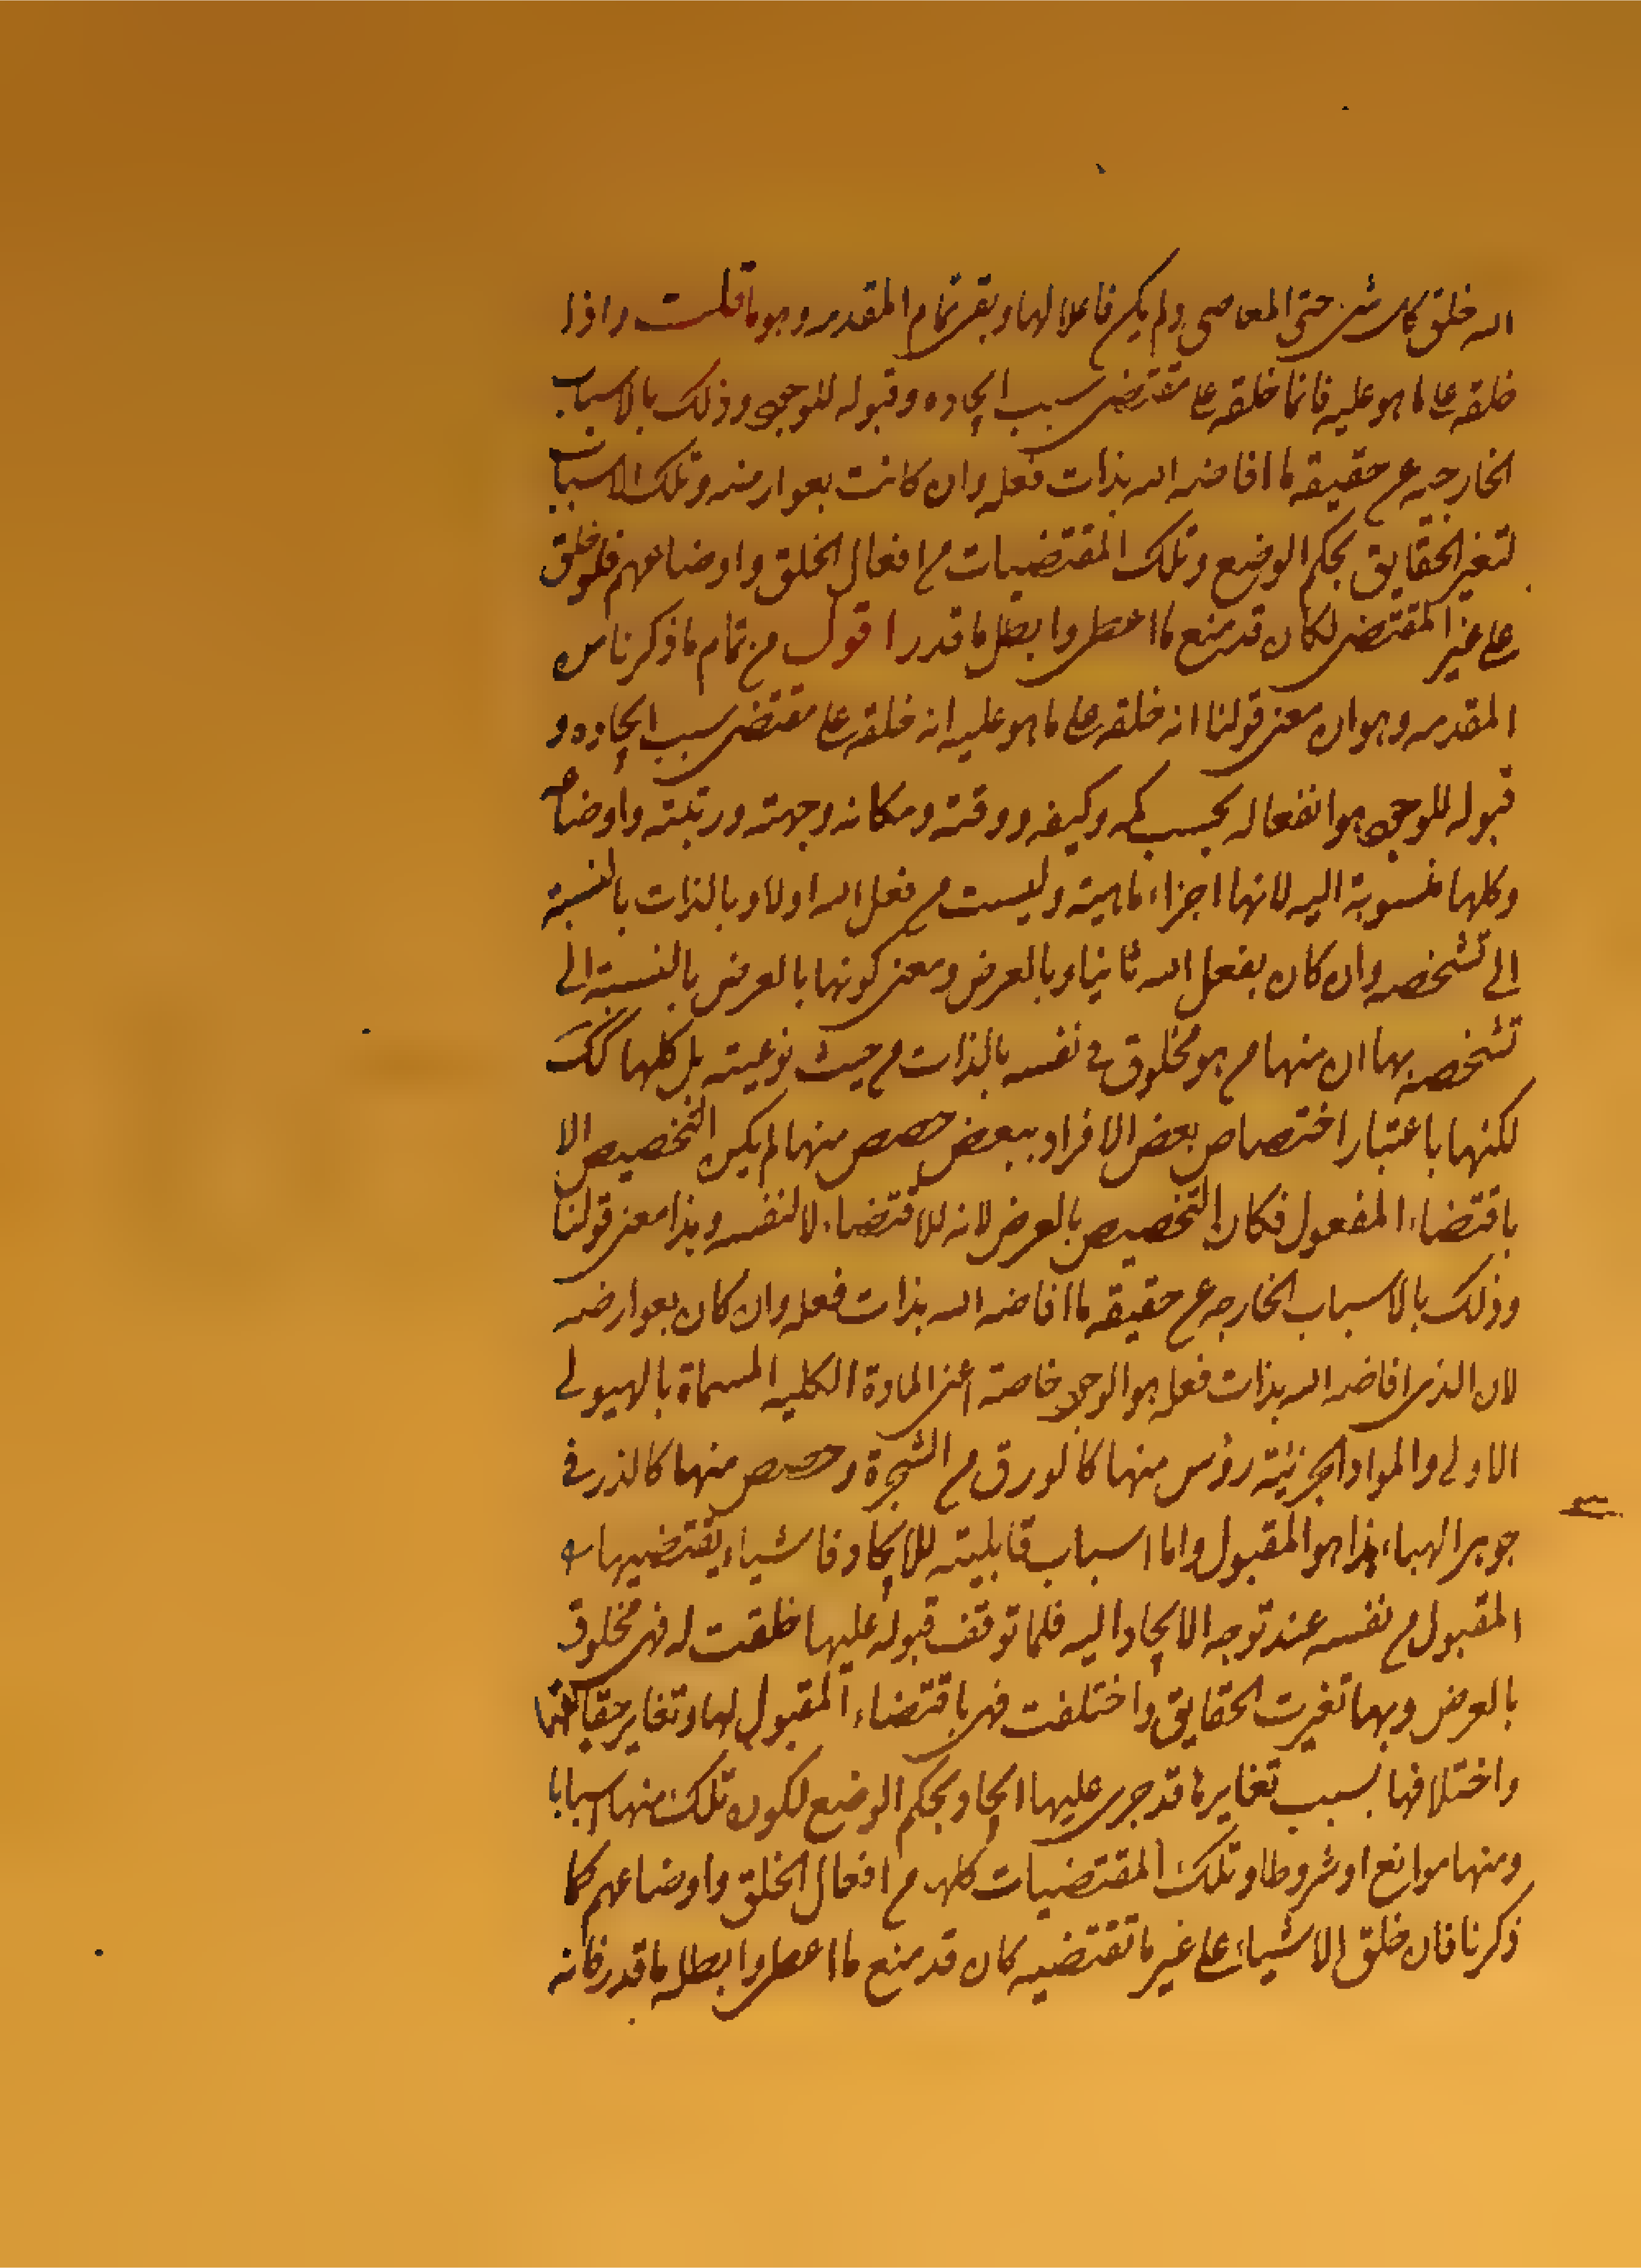 الله خلق كل شئ حتى المعاصى ولم يكن فاعلا لها وبقى تمام المقدمه وهو ما قلت واذا
خلقه على ما هو عليه فانما خلقه على مقتضى سبب ايجاده وقبوله للوجود وذلك بالاسباب
الخارجيه عن حقيقه ما افاضه الله بذات فعله وان كانت بعوارضه وتلك الاسباب
لتغير الحقايق بحكم الوضع وتلك المقتضيات من افعال الخلق واوضاعهم فلو خلق
على غير المقتضى لكان قد منع ما اعطى وابطل ما قدر اقول من تمام ما ذكرنا من
المقدمه وهو ان معنى قولنا انه خلقه على ما هو عليه انه خلقه على مقتضى سبب ايجاده و
قبوله للوجود هو انفعاله بحسب كمه وكيفه ووقته ومكانه وجهته ورتبته واوضاعه
وكلها منسوبة اليه لانها اجزاء ماهيته وليست من فعل الله اولا وبالذات بالنسبة
الى تشخصه وان كان بفعل الله ثانيا وبالعرض ومعنى كونها بالعرض بالنسبة الى
تشخصه بها ان منها من هو مخلوق فى نفسه بالذات من حيث نوعيته بل كلها كك
لكنها باعتبار اختصاص بعض الافراد ببعض حصص منها لم يكن التخصيص الا
باقتضاء المفعول فكان التخصيص بالعرض لانه للاقتضاء لا لنفسه وهذا معنى قولنا
وذلك بالاسباب الخارجه عن حقيقه ما افاضه الله بذات فعله وان كان بعوارضه
لان الذى افاضه الله بذات فعله هو الوجود خاصة اعنى المادة الكليه المسماة بالهيولى
الاولى والمواد الجزئية رؤس منها كالورق من الشجرة وحصص منها كالذر فى
جوهر الهباء هذا هو المقبول واما اسباب قابليته للايجاد فاشياء يقتضيها
المقبول من نفسه عند توجه الايجاد اليه فلما توقف قبوله عليها خلقت له فهى مخلوق
بالعرض وبها تغيرت الحقايق واختلفت فهى باقتضاء المقبول لها وتغاير حقايقها
واختلافها بسبب تغاير ما قد جرى عليها ايجاد بحكم الوضع لكون تلك منها اسبابا
ومنها موانع او شروطا وتلك المقتضيات كلها من افعال الخلق واوضاعهم كما
ذكرنا فان خلق الاشياء على غير ما تقتضيه كان قد منع ما اعطى وابطل ما قدر فانه